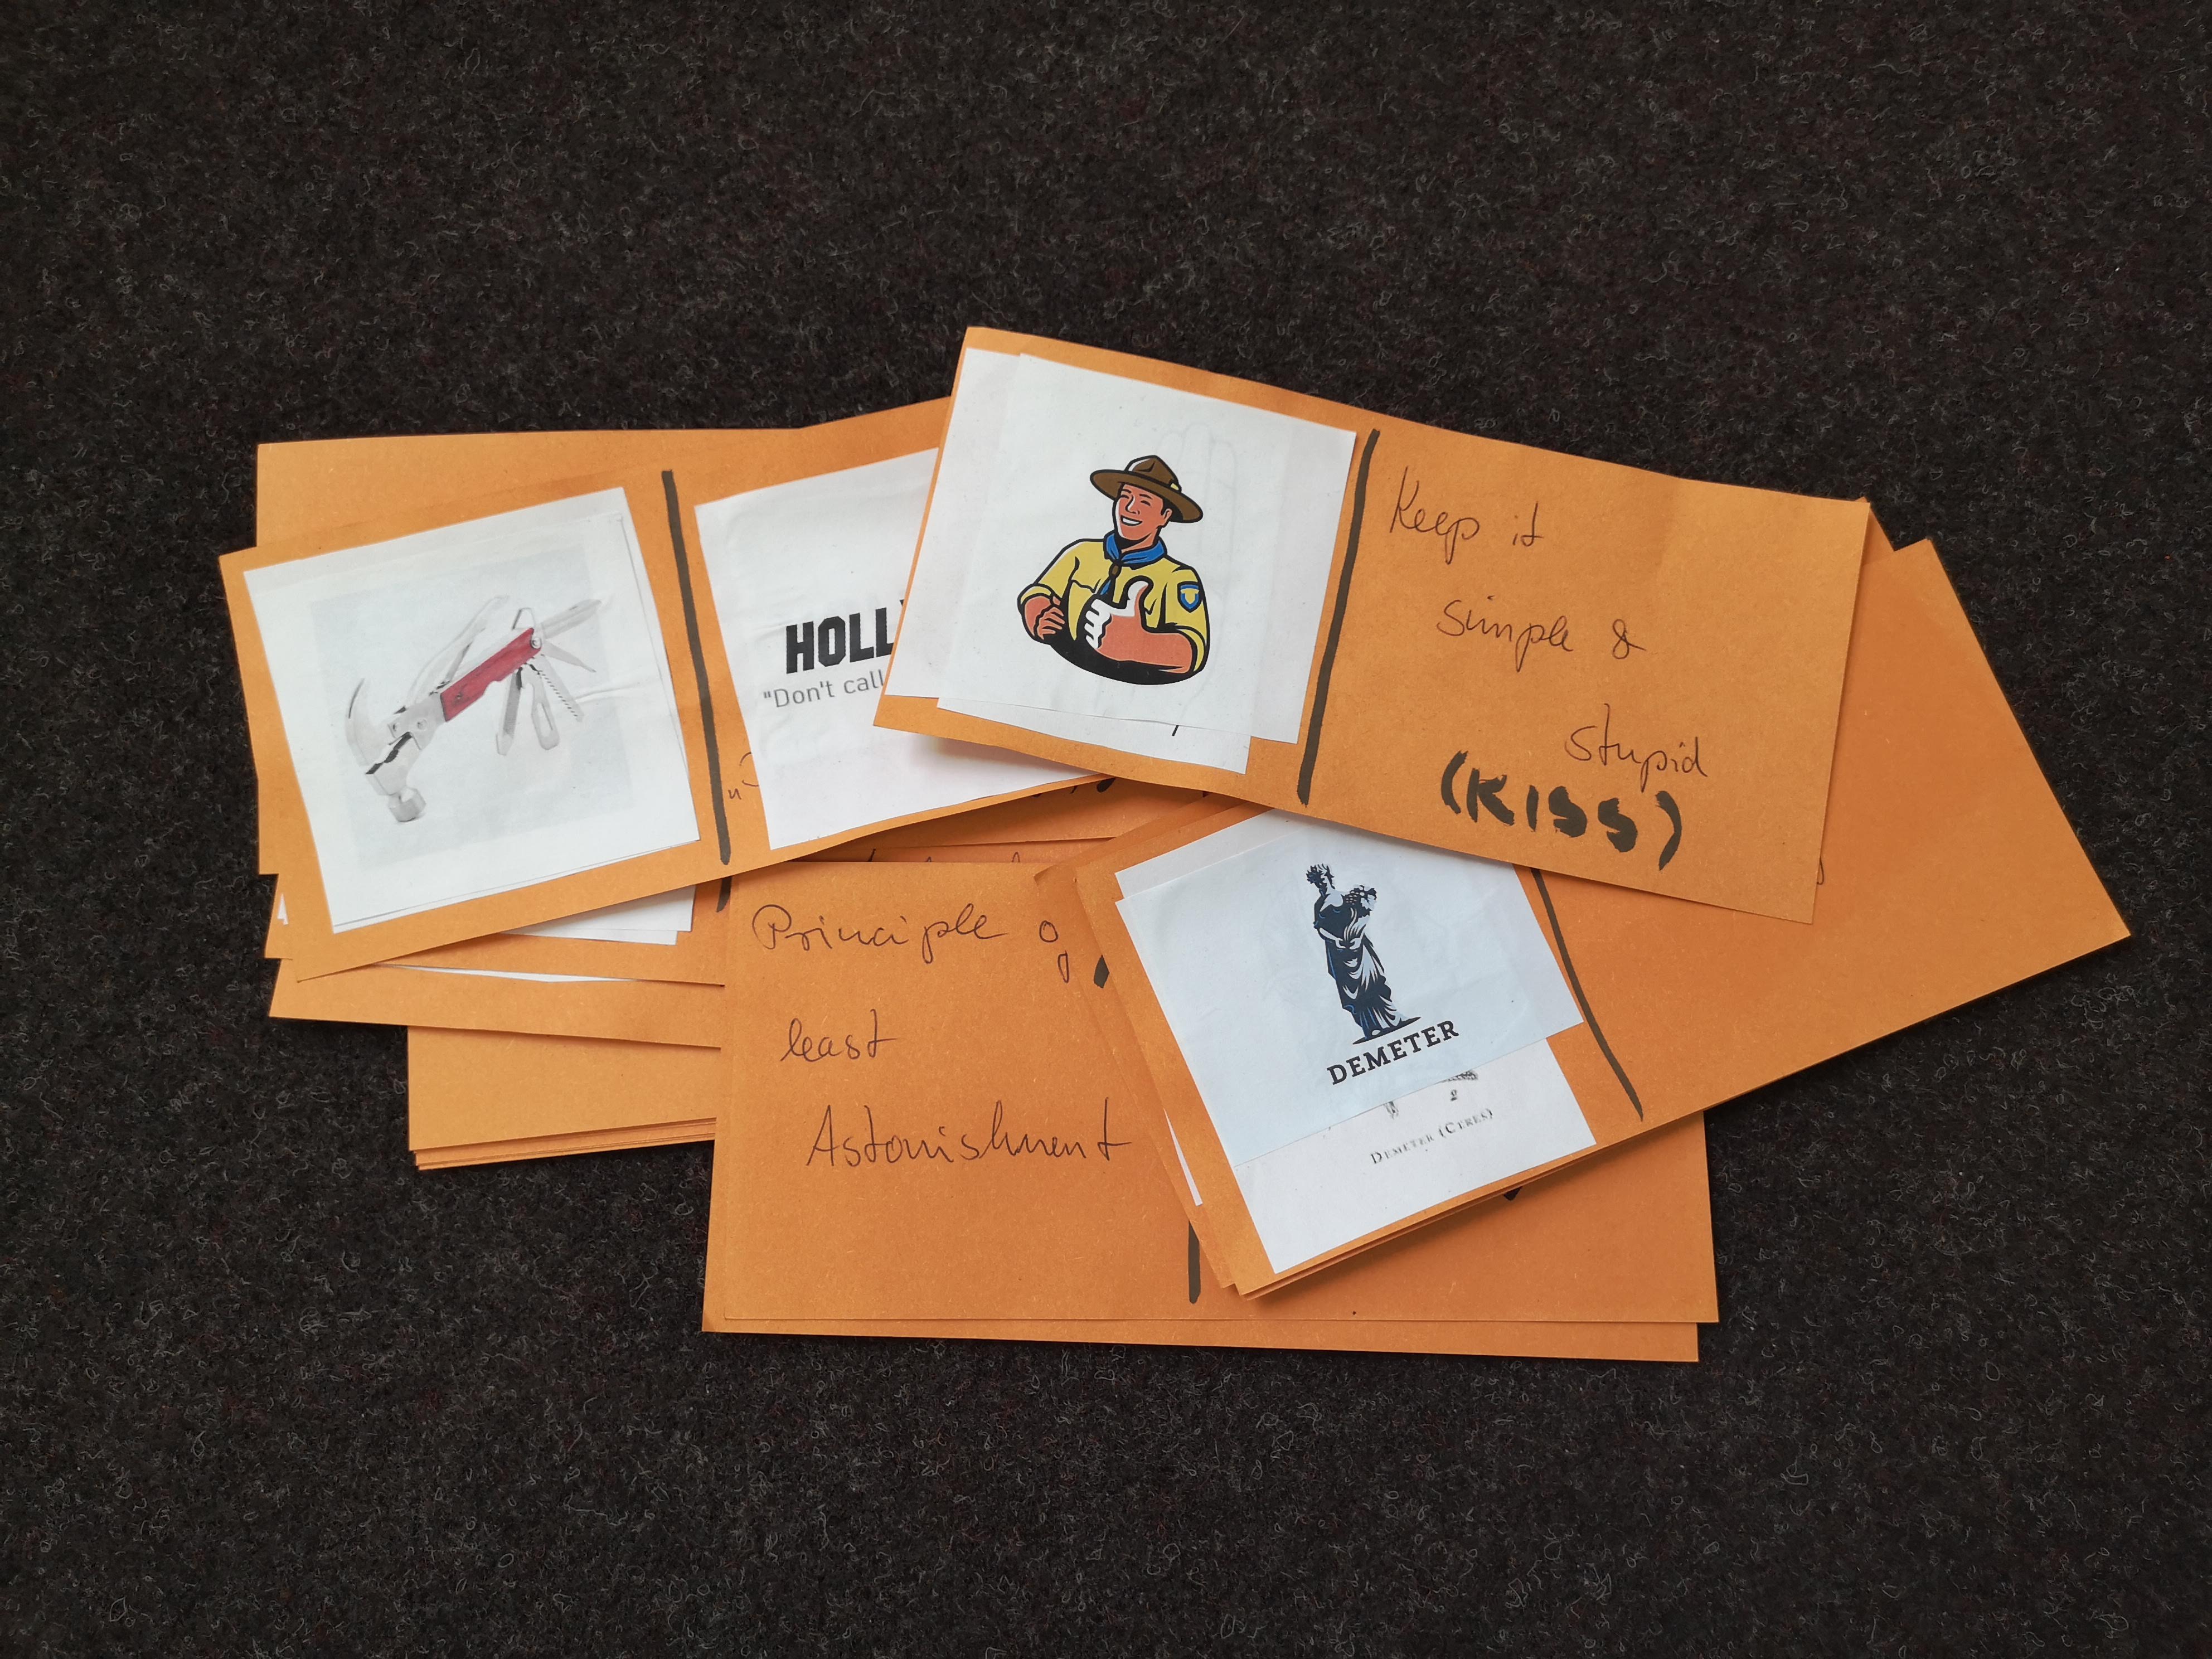 HOLL
"Don't call
Keep it
simple &
stupid
(KISS)
Principle of
least
Astonishment
DEMETER
DEMETER (CERES)